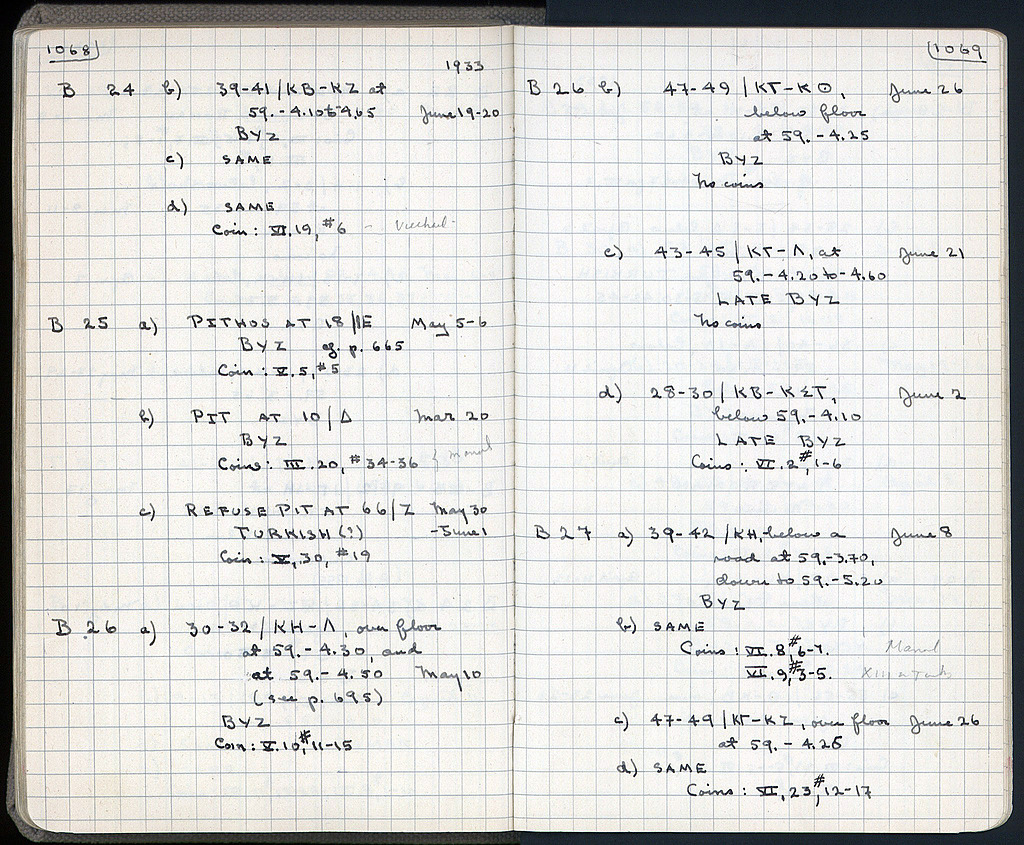 1068
1933
B 24 b) 39-41/ΚΒ-ΚΖ at
59.-4.10 to 4.65 June 19-20
BYZ
c) SAME
d) SAME
Coin: VI.19, #6 -
B 25 a) PITHOS AT 18/ΙΕ May 5-6
BYZ cf. p. 665
Coin: V.5, #5
b) PIT AT 10/Δ Mar 20
BYZ
Coins: III.20, #34-36
c) REFUSE PIT AT 66/Ζ May 30
TURKISH(?) -June 1
Coin: V.30, #19
B 26 a) 30-32/ΚΗ-Λ, over floor
at 59.-4.30, and
at 59.-4.50 May 10
(see p. 695)
BYZ
Coin: V.10, #11-15
1069
B 26 b) 47-49/ΚΓ-ΚΘ, June 26
below floor
at 59.-4.25
BYZ
No coins
c) 43-45/ΚΓ-Λ, at June 21
59.-4.20 to -4.60
LATE BYZ
No coins
d) 28-30/ΚΒ-ΚΣΤ, June 2
below 59.-4.10
LATE BYZ
Coins: VI.2, #1-6
B 27 a) 39-42/ΚΗ, below a June 8
road at 59.-3.70,
down to 59.-5.20
BYZ
b) SAME
Coins: VI.8, #6-7.
VI.9, #3-5.
c) 47-49/ΚΓ-ΚΖ, over floor June 26
at 59.-4.25
d) SAME
Coins: VI.23, #12-17